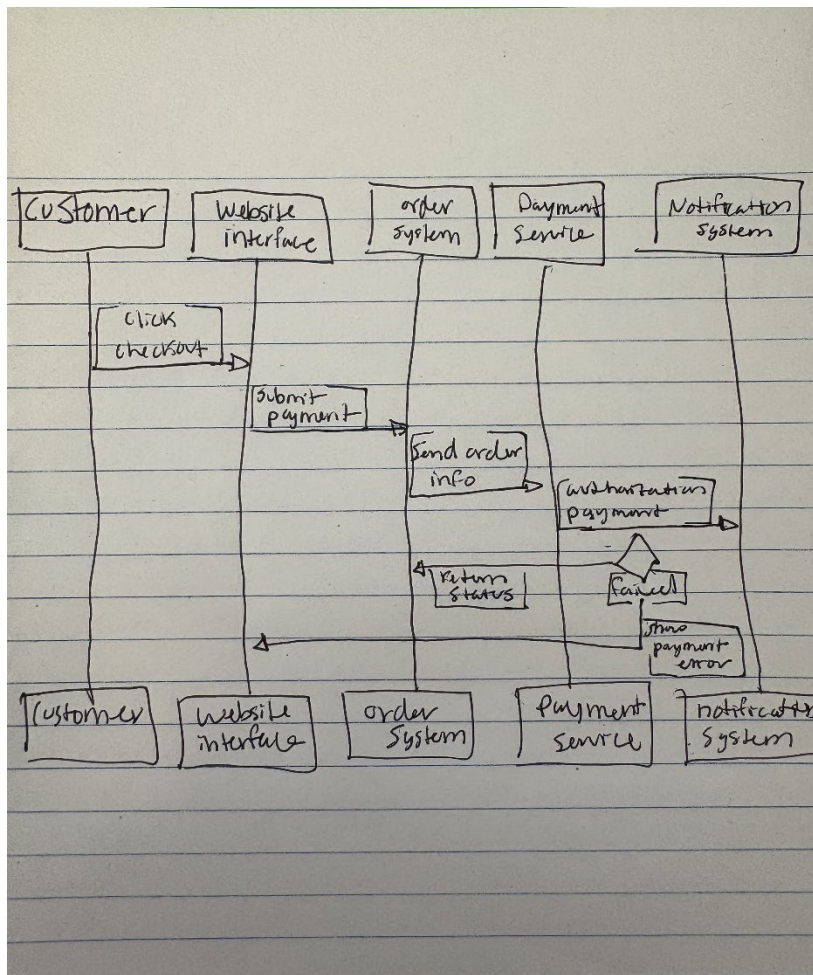 Customer
Website
interface
order
system
Payment
Service
Notification
system
click
checkout
Submit
payment
Send order
info
payment
return
status
failed
show
payment
error
Customer
website
interface
order
System
Payment
service
notification
System